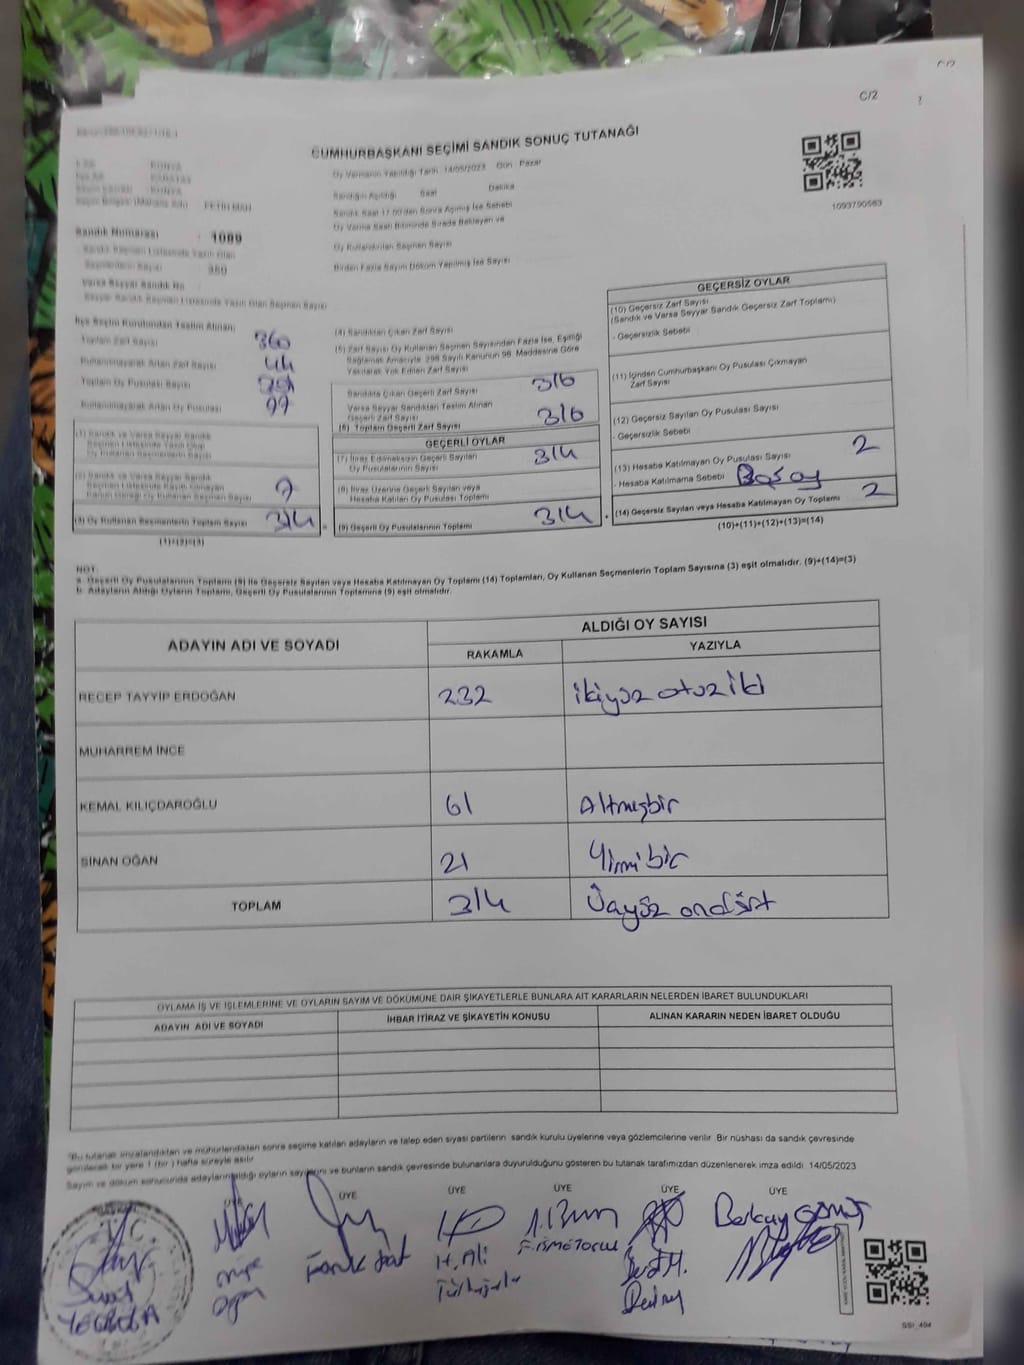 C/2
CUMHURBAŞKANI SEÇİMİ SANDIK SONUÇ TUTANAĞI
Oy Vermenin Yapıldığı Tarih 14/05/2023 Gün Pazar
Sandığın Açıldığı Saat Dakika
Sandık Saat 17.00'den Sonra Açılmış İse Sebebi
Oy Verme Saati Bitiminde Sırada Bekleyen ve
Oy Kullandırılan Seçmen Sayısı
Birden Fazla Sayım Döküm Yapılmış İse Sayısı
1093790563
KONYA
KARATAY
KONYA
FETİH MAH
Sandık Numarası 1089
Seçmenlerin Sayısı 350
Varsa Seyyar Sandık No
Seyyar Sandık Seçmen Listesinde Yazılı Olan Seçmen Sayısı
İlçe Seçim Kurulundan Teslim Alınan;
Toplam Zarf Sayısı 360
Kullanılmayarak Artan Zarf Sayısı 44
Toplam Oy Pusulası Sayısı
Kullanılmayarak Artan Oy Pusulası 77
(1) Sandık ve Varsa Seyyar Sandık
Seçmen Listesinde Yazılı Olup
Oy Kullanan Seçmenlerin Sayısı
(2) Sandık ve Varsa Seyyar Sandık
Seçmen Listesinde Kayıtlı Olmayan
Kanun Gereği Oy Kullanan Seçmen Sayısı 7
(3) Oy Kullanan Seçmenlerin Toplam Sayısı 314
(1)+(2)=(3)
(4) Sandıktan Çıkan Zarf Sayısı
(5) Zarf Sayısı Oy Kullanan Seçmen Sayısından Fazla İse, Eşitliği
Sağlamak Amacıyla 298 Sayılı Kanunun 98. Maddesine Göre
Yakılarak Yok Edilen Zarf Sayısı
Sandıkta Çıkan Geçerli Zarf Sayısı 316
Varsa Seyyar Sandıktan Teslim Alınan
Geçerli Zarf Sayısı
(6) Toplam Geçerli Zarf Sayısı 316
GEÇERLİ OYLAR
(7) İtiraz Edilmeksizin Geçerli Sayılan
Oy Pusulalarının Sayısı 314
(8) İtiraz Üzerine Geçerli Sayılan veya
Hesaba Katılan Oy Pusulası Toplamı
(9) Geçerli Oy Pusulalarının Toplamı 314
GEÇERSİZ OYLAR
(10) Geçersiz Zarf Sayısı
(Sandık ve Varsa Seyyar Sandık Geçersiz Zarf Toplamı)
- Geçersizlik Sebebi
(11) İçinden Cumhurbaşkanı Oy Pusulası Çıkmayan
Zarf Sayısı
(12) Geçersiz Sayılan Oy Pusulası Sayısı
- Geçersizlik Sebebi
(13) Hesaba Katılmayan Oy Pusulası Sayısı 2
- Hesaba Katılmama Sebebi Boş oy
(14) Geçersiz Sayılan veya Hesaba Katılmayan Oy Toplamı 2
(10)+(11)+(12)+(13)=(14)
NOT:
a. Geçerli Oy Pusulalarının Toplamı (9) ile Geçersiz Sayılan veya Hesaba Katılmayan Oy Toplamı (14) Toplamları, Oy Kullanan Seçmenlerin Toplam Sayısına (3) eşit olmalıdır. (9)+(14)=(3)
b. Adayların Aldığı Oyların Toplamı, Geçerli Oy Pusulalarının Toplamına (9) eşit olmalıdır.
ADAYIN ADI VE SOYADI ALDIĞI OY SAYISI
RAKAMLA YAZIYLA
RECEP TAYYİP ERDOĞAN 232 ikiyüz otuz iki
MUHARREM İNCE
KEMAL KILIÇDAROĞLU 61 Altmışbir
SİNAN OĞAN 21 Yirmi bir
TOPLAM 314 Üçyüz ondört
OYLAMA İŞ VE İŞLEMLERİNE VE OYLARIN SAYIM VE DÖKÜMÜNE DAİR ŞİKAYETLERLE BUNLARA AİT KARARLARIN NELERDEN İBARET BULUNDUKLARI
ADAYIN ADI VE SOYADI İHBAR İTİRAZ VE ŞİKAYETİN KONUSU ALINAN KARARIN NEDEN İBARET OLDUĞU
"Bu tutanak imzalandıktan ve mühürlendikten sonra seçime katılan adayların ve talep eden siyasi partilerin sandık kurulu üyelerine veya gözlemcilerine verilir. Bir nüshası da sandık çevresinde
görülecek bir yere 1 (bir) hafta süreyle asılır.
Sayım ve döküm sonucunda adayların aldığı oyların sayılarını ve bunların sandık çevresinde bulunanlara duyurulduğunu gösteren bu tutanak tarafımızdan düzenlenerek imza edildi. 14/05/2023
ÜYE ÜYE ÜYE ÜYE ÜYE ÜYE
T.C.
H. Ali
Berkay
SSİ_404